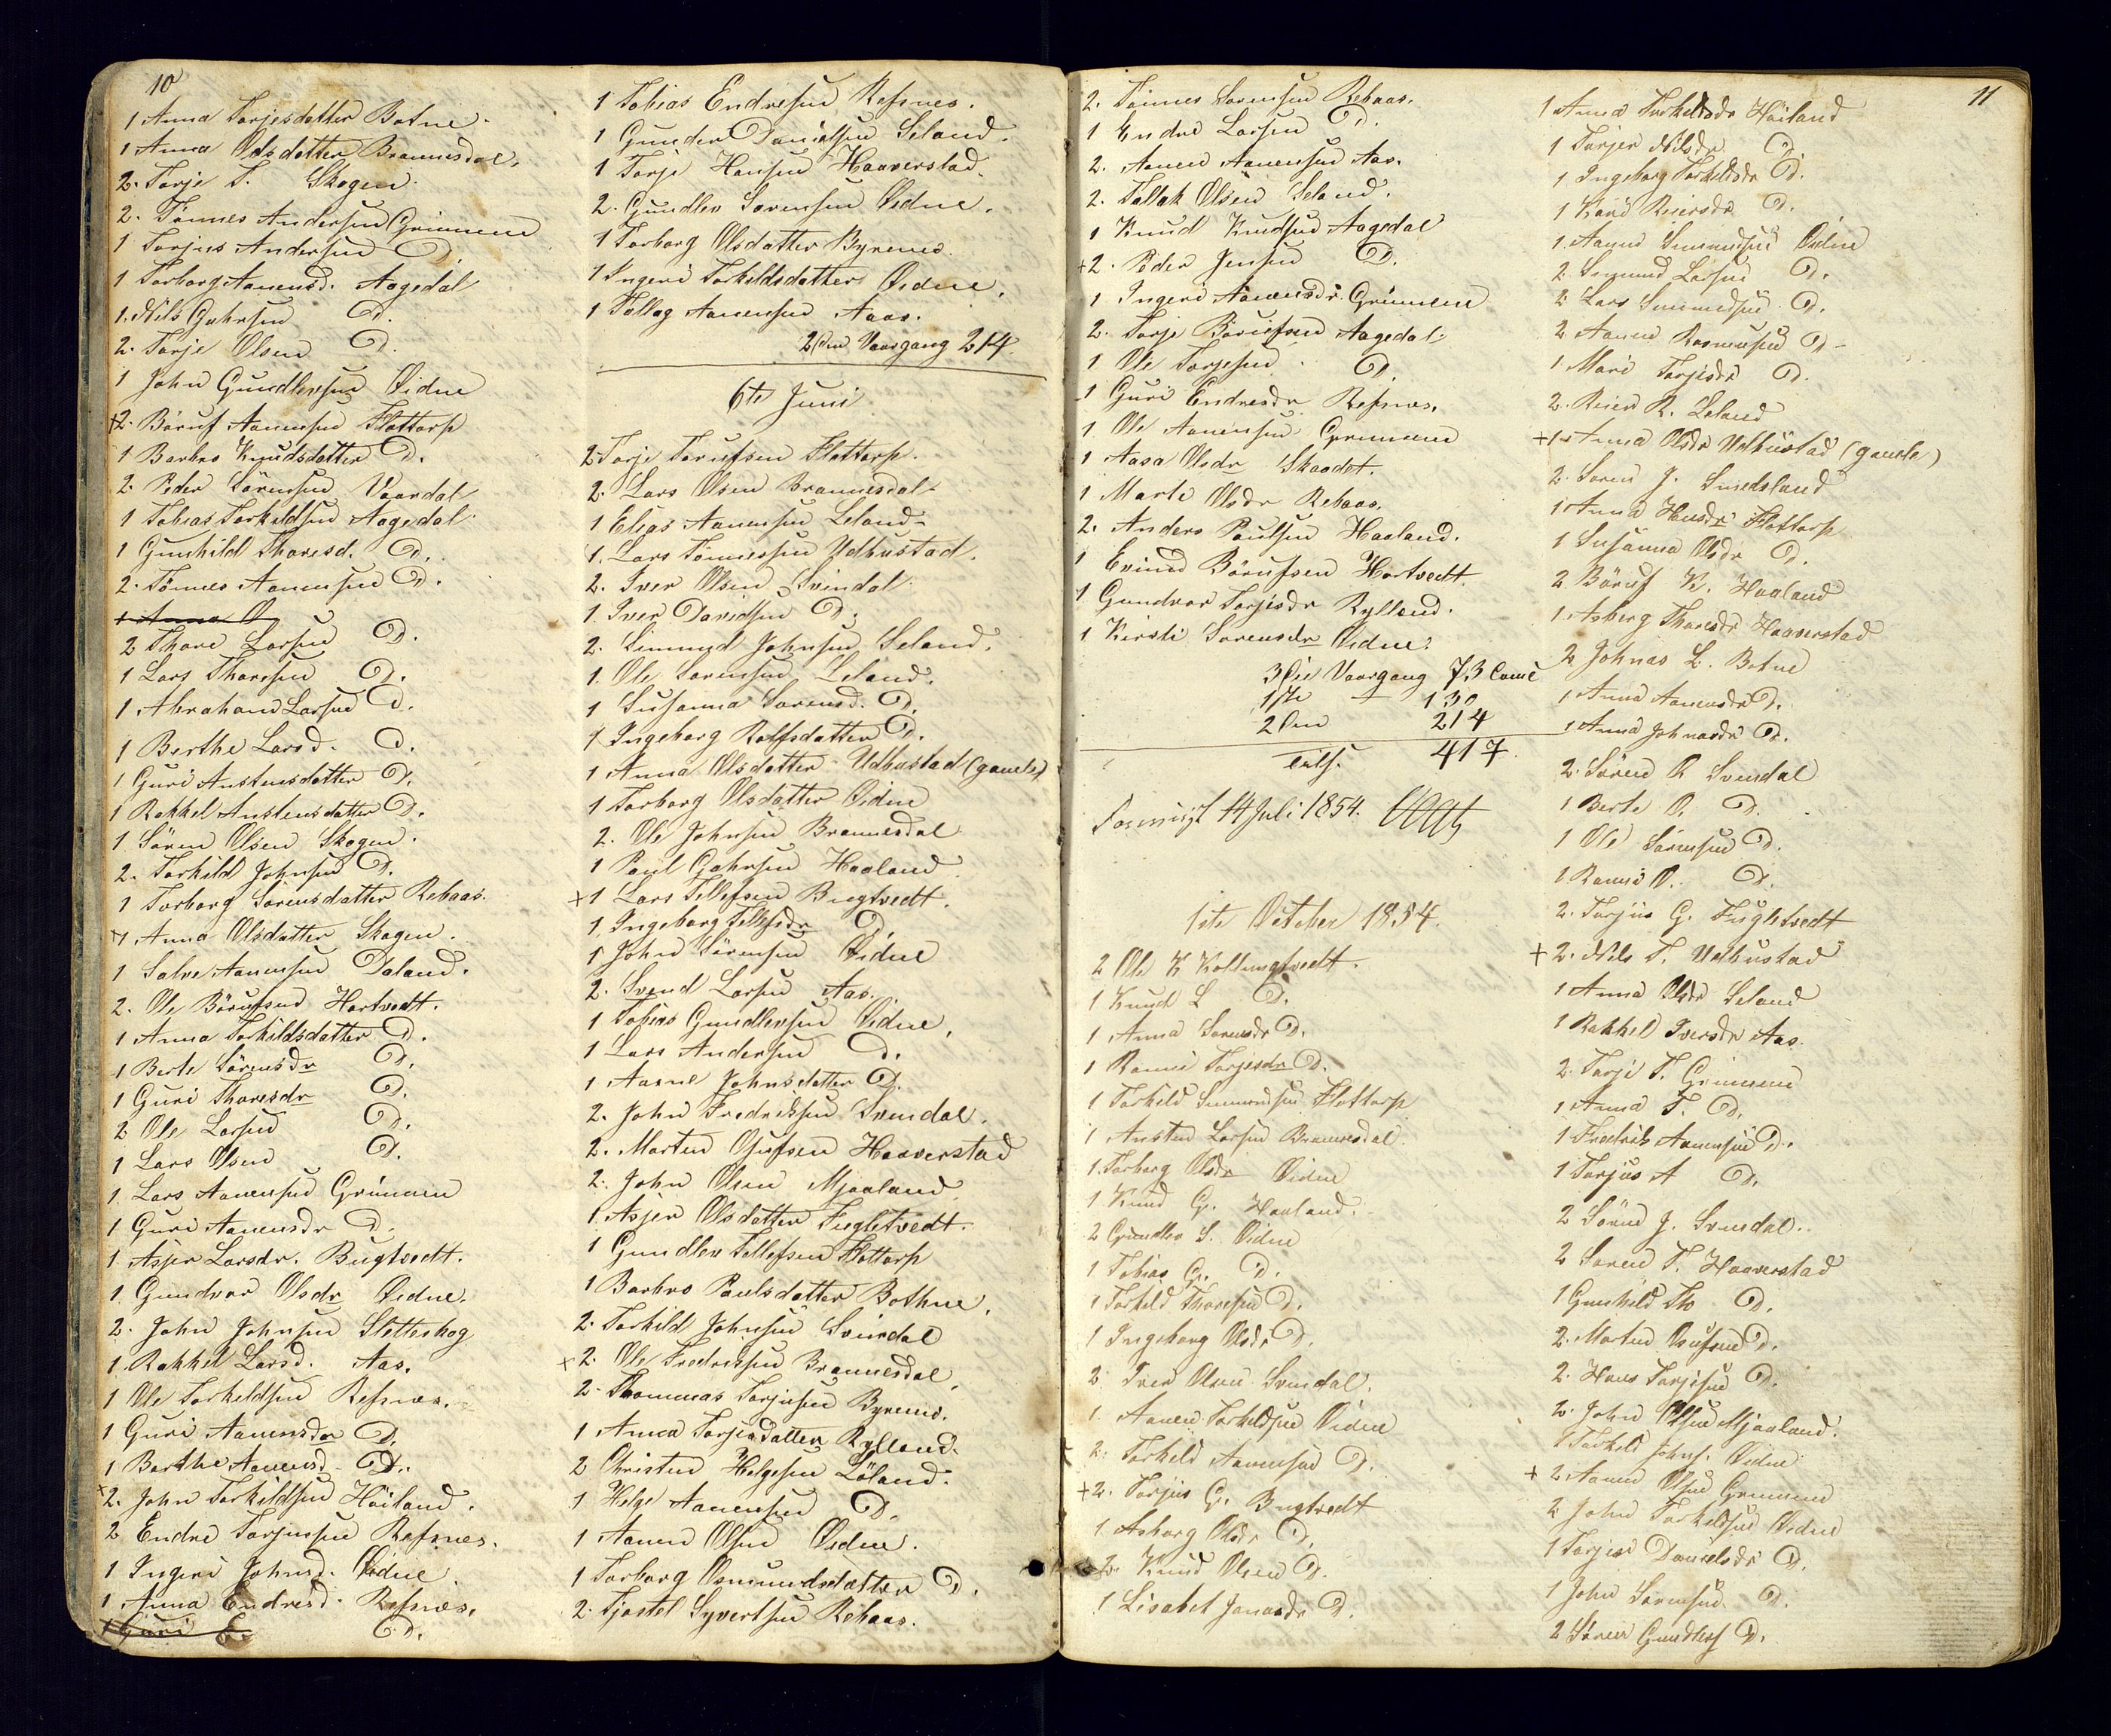 10
1 Anna Torjesdatter Botne.
1 Anna Olsdatter Brannesdal.
2. Torje T. Skogen.
2. Tönnes Andersen Grimmen
1 Torjus Andersen D.
1 Torborg Aanensd. Aagedal
1. Nils Gahrsen D.
2. Torje Olsen D.
1 John Gundlevsen Eidne
+2. Böruf Aanensen Flottorp
1 Barbro Knudsdatter D.
2. Peder Sörensen Vaardal
1 Tobias Torkildsen Aagedal
1 Gunhild Thoresd. D.
2. Tönnes Aanensen D.
1 Anna O
2 Thore Larsen D.
1 Lars Thoresen D.
1 Abraham Larsen D.
1 Berthe Larsd. D.
1 Guri Austensdatter D.
1 Rakkel Austensdatter D.
1 Sören Olsen Skogen.
2. Torkild Johnsen D.
1 Torborg Sörensdatter Rebaas.
+1 Anna Olsdatter Skogen.
1 Salve Aanensen Daland.
2. Ole Börufsen Hortvedt.
1 Anna Torkildsdatter D.
1 Berte Sörensdr D.
1 Guri Thoresdr D.
2 Ole Larsen D.
1 Lars Olsen D.
1. Lars Aanensen Grimmen
1 Guri Aanensdr D.
1. Asjer Larsdr. Bugtvedt.
1. Gundvor Olsdr Eidne.
2. John Johnsen Sletteskog
1. Rakkel Larsd. Aas.
1 Ole Torkeldsen Refsnes.
1 Guri Aanensdr D.
1 Berthe Aanensd. D.
+2. John Torkildsen Höiland.
2 Endre Torjussen Refsnes.
1 Ingeri Johnsd. Eidne.
1 Anna Endresd. Refsnes.
1 Guri E. D.
1 Tobias Endresen Refsnes.
1 Gunder Danielsen Seland.
1 Torje Hansen Haaverstad.
2. Gundlev Sorensen Eidne.
1 Torborg Olsdatter Byremo.
1 Ingeri Torkildsdatter Eidne.
1 Tollag Aanensen Aaas.
2den Vaargang 214.
6te Juni
2 Torje Torufsen Flottorp.
2. Lars Olsen Brannesdal.
1 Elias Aanensen Leland.
1. Lars Tönnessen Udhustad.
2. Iver Olsen Svindal.
1. Iver Davidsen D.
2. Simund Johnsen Seland.
1. Ole Sorensen Leland.
1 Susanna Sorensd. D.
1 Ingeborg Rolfsdatter D.
1 Anna Olsdatter Udhustad (gamle)
1 Torborg Olsdatter Eidne
2. Ole Johnsen Brannesdal
1 Paul Gahrsen Haaland.
+1 Lars Tellefsen Bugtvedt.
1. Ingeborg Tellefsdr D.
1 John Sörensen Eidne
2. Svend Larsen Aas.
1 Tobias Gundlevsen Eidne.
1 Lars Andersen D.
1 Aasne Johnsdatter D.
2. John Fredriksen Svendal.
2. Morten Osufsen Haaverstad
2. John Olsen Mjaaland.
1. Asjer Olsdatter Fugletvedt.
1 Gundlev Tellefsen Flottorp
1 Barbro Paulsdatter Bothne.
2. Torkild Johnsen Svindal
+2. Ole Fredriksen Brannesdal.
2. Thommas Torjusen Byremo.
1 Anna Torjesdatter Rylland.
2 Christen Helgesen Löland.
1 Helge Aanensen D.
1 Aanen Olsen Eidne.
1 Torborg Osmundsdatter D.
2. Tjostel Syvertsen Rebaas.
2. Tönnes Sorensen Rebaas.
1 Endre Larsen D.
2. Aanen Aanensen Aas.
2. Tollak Olsen Seland.
1 Knud Knudsen Aagedal
+2. Peder Jensen D.
1 Ingeri Aanensdr Grimmen
2. Torje Börufsen Aagedal.
1 Ole Torjesen D.
1 Guri Endresdr Refsnes.
1 Ole Aanensen Grimmen
1 Aasa Olsdr Skaadet.
1 Marte Olsdr Rebaas.
2. Anders Paulsen Haaland.
1 Evind Börufsen Hortvedt
1 Gundvor Torjesdr Rylland.
1 Kirsti Sorensdr Eidne.
3die Vaargang 73 Com.
1ste — 130
2den 214
Tils. 417.
14 Juli 1854.
1ste October 1854.
2 Ole K Kollungtvedt.
1 Knud L D.
1 Anna Sorensdr D.
1 Rannei Torjesdr D.
1 Torkeld Simundsen Flottorp
1 Austen Larsen Brannesdal.
1. Torborg Olsdr Eidne
1 Knud G. Haaland.
2 Gundlev S. Eidne
1 Tobias G. D.
1 Torkeld Thoresen D.
1 Ingeborg Olsdr D.
2. Iver Olsen Svindal.
1. Aanen Torkeldsen Eidne
2. Torkeld Aanensen D.
+2. Torjus G. Bugtvedt
1. Asborg Olsdr D.
2. Knud Olsen D.
1 Lisabet Jonasdr D.
11
1 Anna Torkeldsdr Höiland
1 Torjer Nilsdr D.
1 Ingeborg Torkeldsdr D.
1 Kari Reiersdr D.
1. Aanen Simundsen Eidne
2. Simund Larsen D.
2. Lars Simundsen D.
2 Aanen Rasmussen D.
1 Mari Torjesdr D.
2. Reier R. Leland
+1 Anna Olsdr Udhustad (gamle)
2. Soren J. Smedsland
1 Anna Hansdr Flottorp
1 Susanna Olsdr D.
2 Böruf K. Haaland
1. Asberg Thoresdr Haaverstad
2 Johnas L. Botne
1 Anna Aanensdr D.
1 Anna Johnasdr D.
2. Sören R Svendal
1 Berte O. D.
1 Ole Sörensen D.
1 Rannei O. D.
2. Torjus G. Fugletvedt
+2. Nils T. Udhustad
1 Anna Olsdr Seland
1 Rakkel Iversdr Aas.
2. Torje T. Grimmen
1 Anna T. D.
1 Fredrik Aanensen D.
1 Torjus A D.
2 Sören J. Svendal.
2 Soren T. Haaverstad
1 Gunhild Th D.
2. Morten Osufsen D.
2. Hans Torjesen D.
2. John Olsen Mjaaland.
1 Torkeld Johns. Eidne
+2 Aanen Olsen Grimmen
2 John Torkeldsen Eidne
1 Torjer Danielsdr D.
1 John Sorensen D.
2 Sören Gundlevs D.